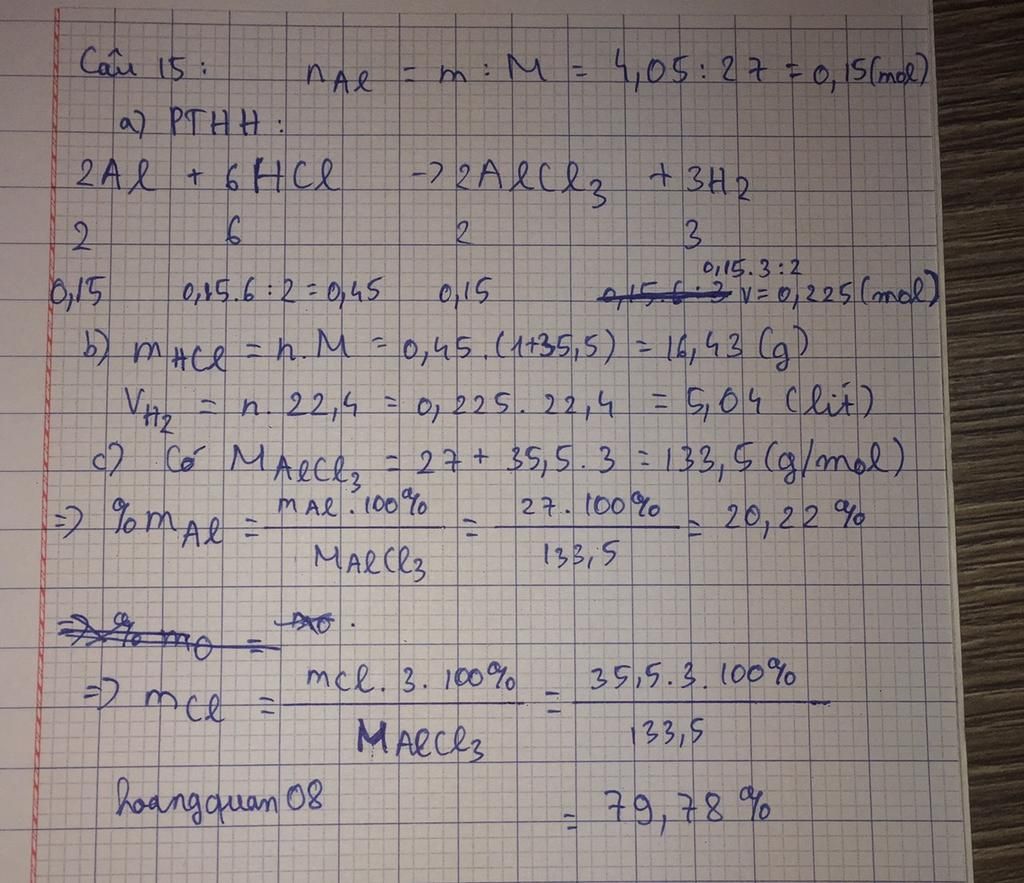 Câu 15: nAl = m : M = 4,05 : 27 = 0,15 (mol)
a) PTHH:
2Al + 6HCl -> 2AlCl3 + 3H2
2 6 2 3
0,15.3:2
0,15 0,15.6:2=0,45 0,15 0,15.6:2 v=0,225 (mol)
b) mHCl = n.M = 0,45.(1+35,5) = 16,43 (g)
VH2 = n.22,4 = 0,225.22,4 = 5,04 (lít)
c) Có MAlCl3 = 27 + 35,5.3 = 133,5 (g/mol)
=> %mAl = mAl.100% / MAlCl3 = 27.100% / 133,5 = 20,22%
=> % mO =
=> mCl = mCl.3.100% / MAlCl3 = 35,5.3.100% / 133,5
hoangquan08 = 79,78%